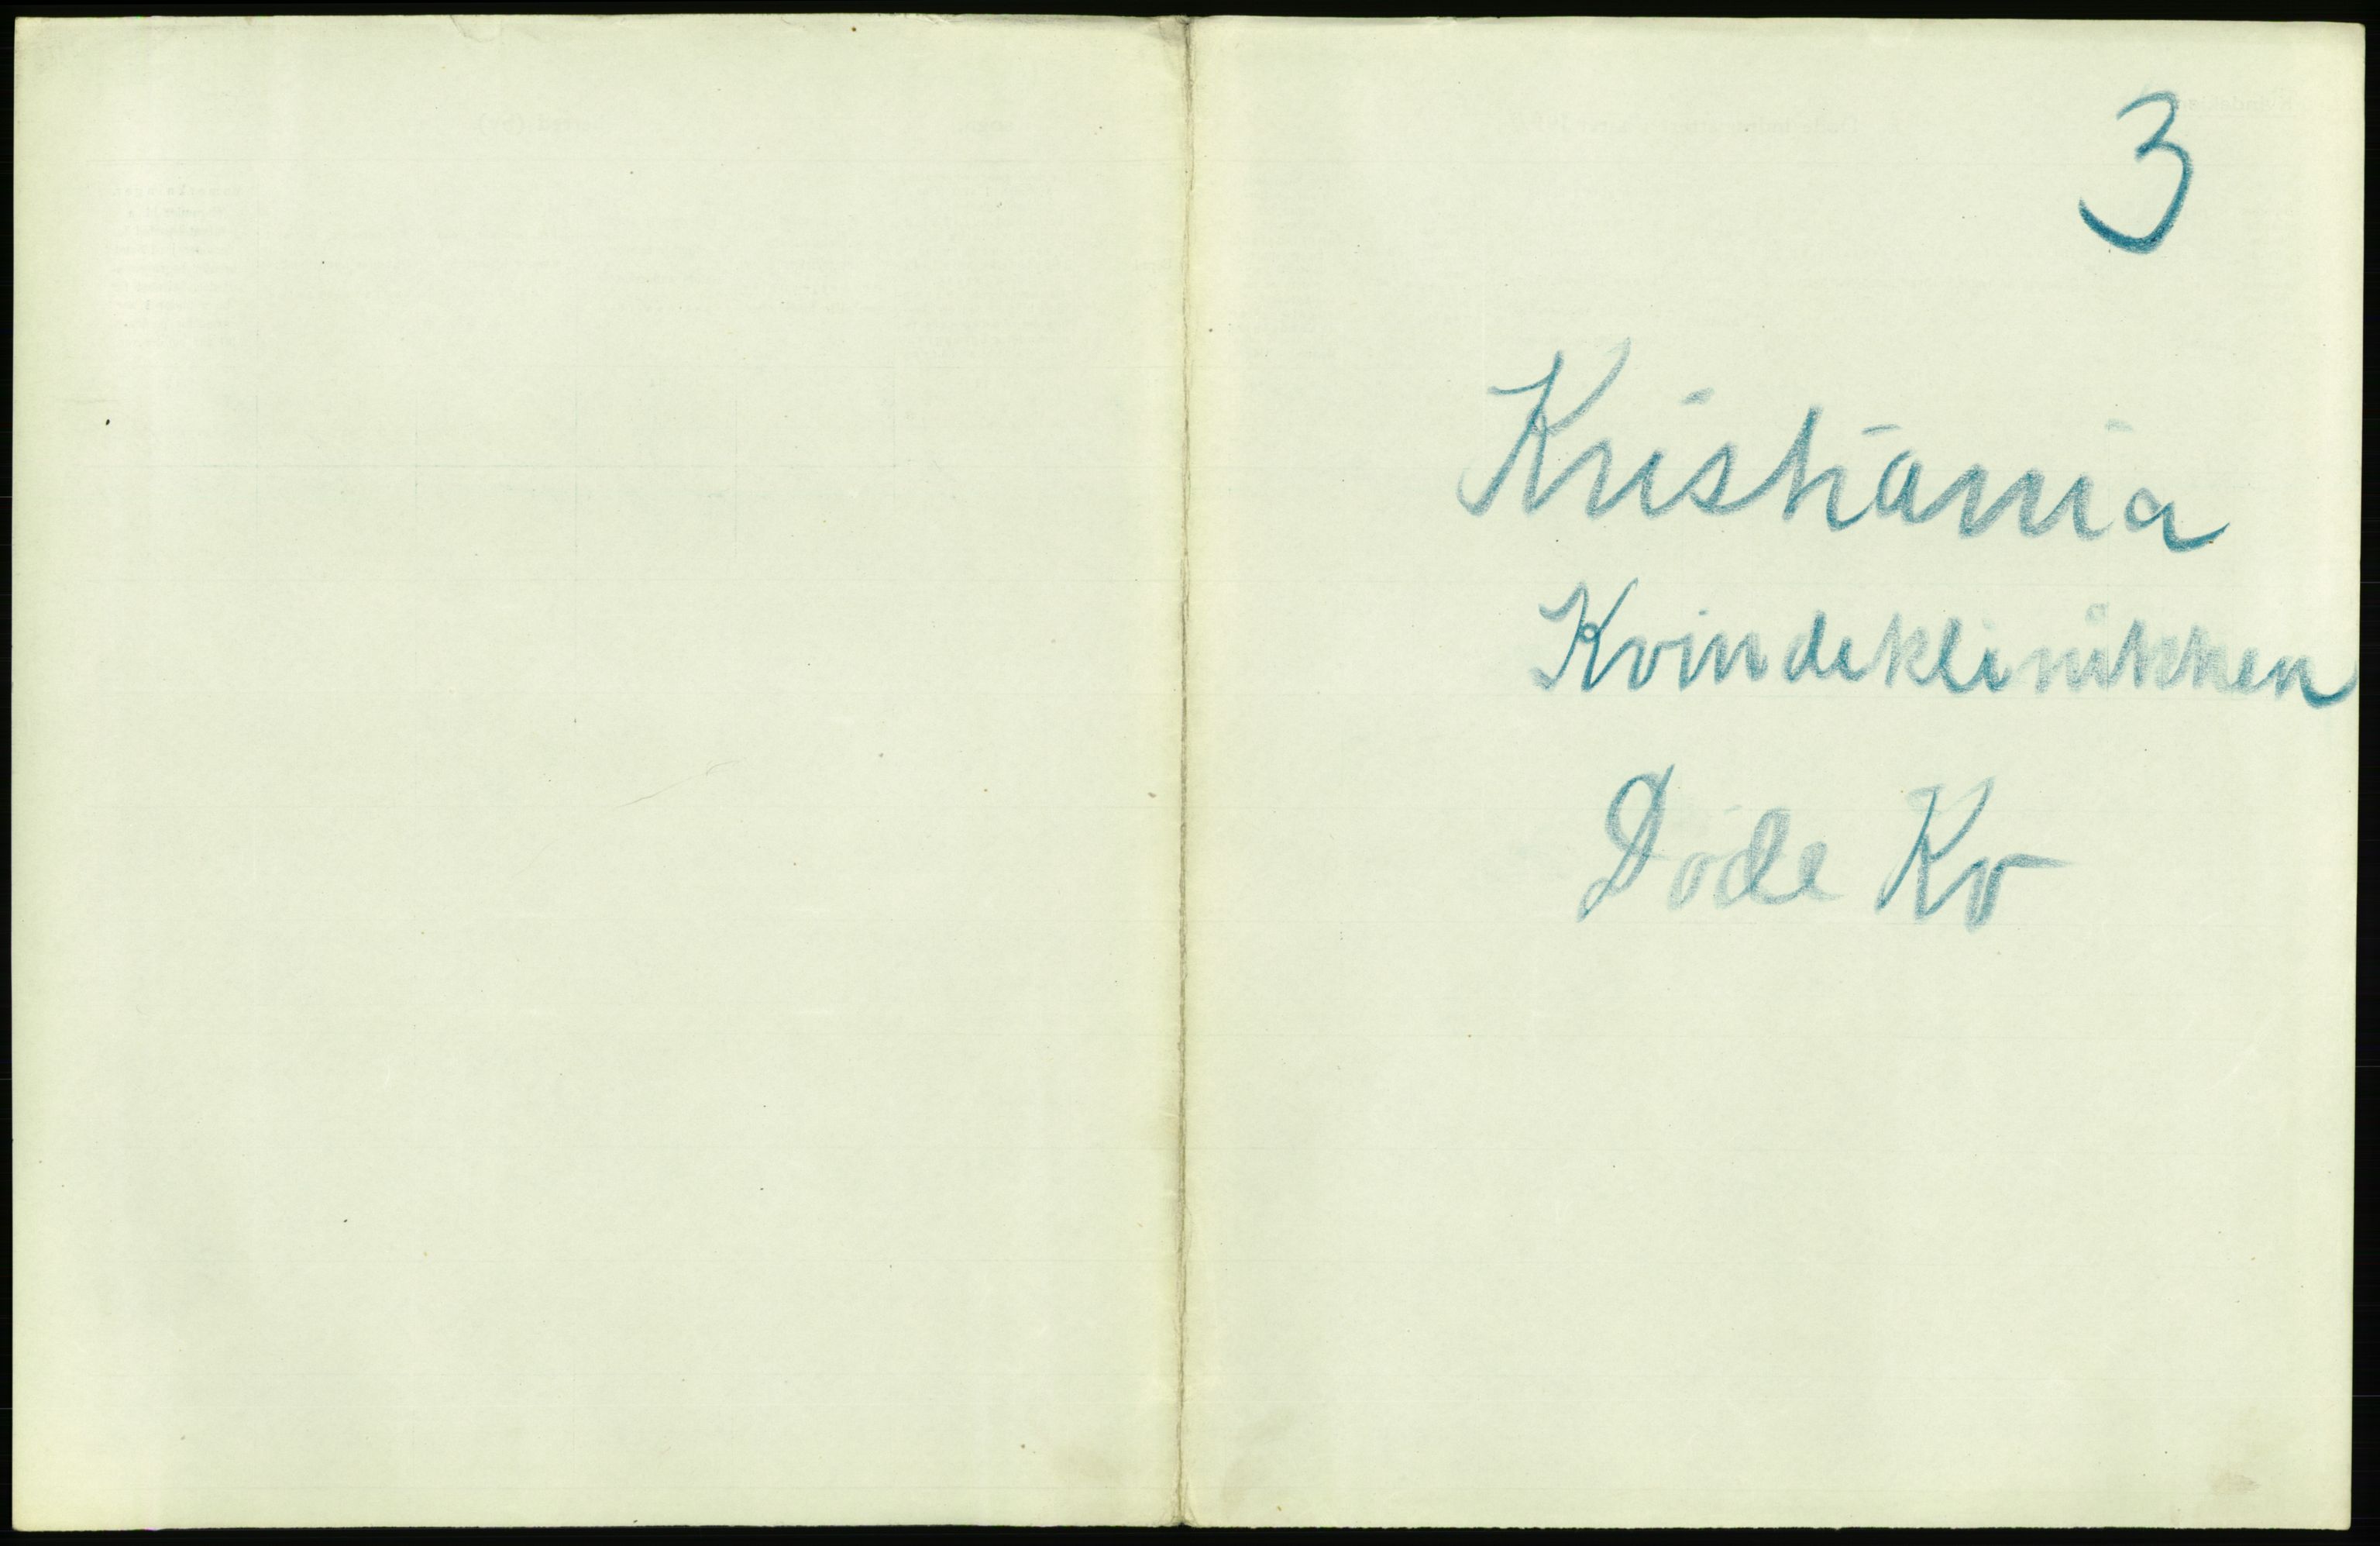 3
Kristiania
Kvindeklinikken
Døde Kv